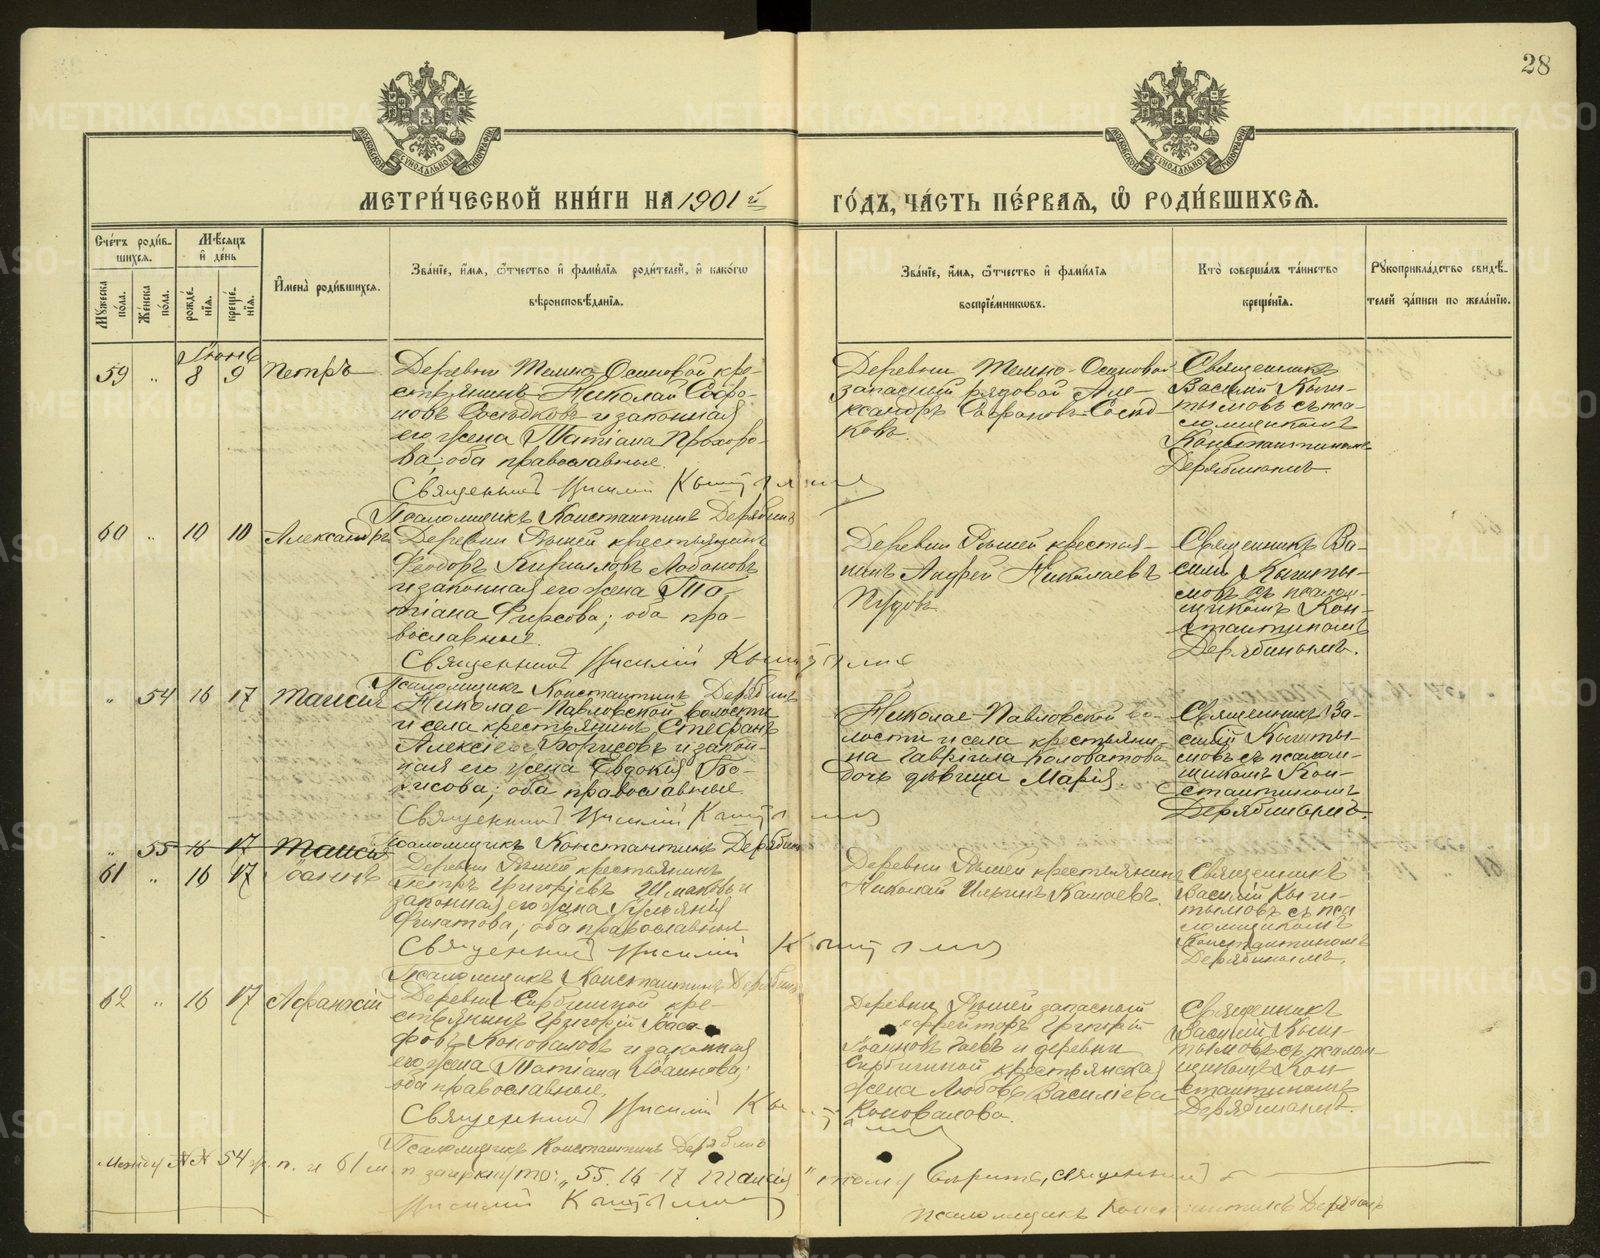 28
МЕТРИ́ЧЕСКОЙ КНИ́ГИ НА 1901 й
ГО́ДЪ, ЧА́СТЬ ПЕ́РВАѦ, Ѽ РОДИ́ВШИХСѦ.
Сче́тъ роди́в-
шихсѧ.
Мꙋжеска по́ла.
Же́нска по́ла.
Мѣ́сѧцъ и҆ де́нь
рожде́-нїѧ.
креще́-нїѧ.
И҆мена̀ роди́вшихсѧ.
Зва́нїе, и҆́мѧ, ѻ҆́тчество и҆ фами́лїѧ роди́телей, и҆ како́гѡ
вѣроисповѣ́данїѧ.
Зва́нїе, и҆́мѧ, ѻ҆́тчество и҆ фами́лїѧ
воспрїе́мниковъ.
Кто̀ соверша́лъ та́инство
креще́нїѧ.
Рꙋкоприкла́дство свидѣ́-
телей за́писи по жела́нїю.
Іюнь
59 " 8 9 Петръ
Деревни Темно-Осиновой кре-
стьянинъ Николай Софро-
новъ Сосѣдковъ и законная
его жена Татіана Прохоро-
ва; оба православные.
Священникъ Василій Кыштымовъ
Псаломщикъ Константинъ Дерябинъ
Деревни Темно-Осиновой
запасный рядовой Але-
ксандръ Софроновъ Сосѣд-
ковъ.
Священникъ
Василій Кыш-
тымовъ съ пса-
ломщикомъ
Константиномъ
Дерябинымъ.
60 " 10 10 Александръ
Деревни крестьянинъ
Ѳеодоръ Кирилловъ Лобановъ
и законная его жена Та-
тіана Фирсова; оба пра-
вославные.
Священникъ Василій Кыштымовъ
Псаломщикъ Константинъ Дерябинъ
Деревни крестья-
нинъ Андрей Николаевъ
Пудовъ.
Священникъ Ва-
силій Кышты-
мовъ съ псалом-
щикомъ Кон-
стантиномъ
Дерябинымъ.
" 54 16 17 Таисія
Николае-Павловской волости
и села крестьянинъ Стефанъ
Алексѣевъ Борисовъ и закон-
ная его жена Евдокія Бо-
рисова; оба православные
Священникъ Василій Кыштымовъ
Псаломщикъ Константинъ Дерябинъ
Николае-Павловской во-
лости и села крестьяни-
на Гавріила Коловатова
дочь дѣвица Марія.
Священникъ Ва-
силій Кышты-
мовъ съ псалом-
щикомъ Кон-
стантиномъ
Дерябинымъ.
" 55 16 17 Таисія
61 " 16 17 Іоаннъ
Деревни крестьянинъ
Петръ Григоріевъ и
законная его жена Іуліанія
Филатова; оба православные
Священникъ Василій Кыштымовъ
Псаломщикъ Константинъ Дерябинъ
Деревни крестьянинъ
Николай Ильинъ
Священникъ
Василій Кыш-
тымовъ съ пса
ломщикомъ
Константиномъ
Дерябинымъ.
62 " 16 17 Аѳанасій
Деревни кре-
стьянинъ Григорій
Коноваловъ и законная
его жена Татіана Іоаннова;
оба православные.
Священникъ Василій Кыштымовъ
Псаломщикъ Константинъ Дерябинъ
Деревни запасный
ефрейторъ Григорій
Іоанновъ и деревни
крестьянская
жена Любовь Василіева
Коновалова.
Священникъ
Василій Кыш-
тымовъ съ псалом-
щикомъ Кон
стантиномъ
Дерябинымъ.
Между №№ 54 ж. п. и 61 м. п зачеркнуто: „55. 16 17 Таисія" Священникъ
Василій Кыштымовъ
псаломщикъ Константинъ Дерябинъ
METRIKI.GASO-URAL.RU